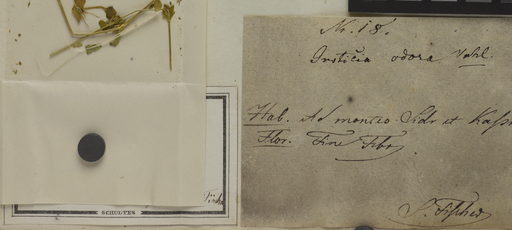 Nr. 18.
Justicia odora Vahl.
Hab. Ad montes Sidr et
Flor. Fine Febr.
S. Fischer
SCHULTES